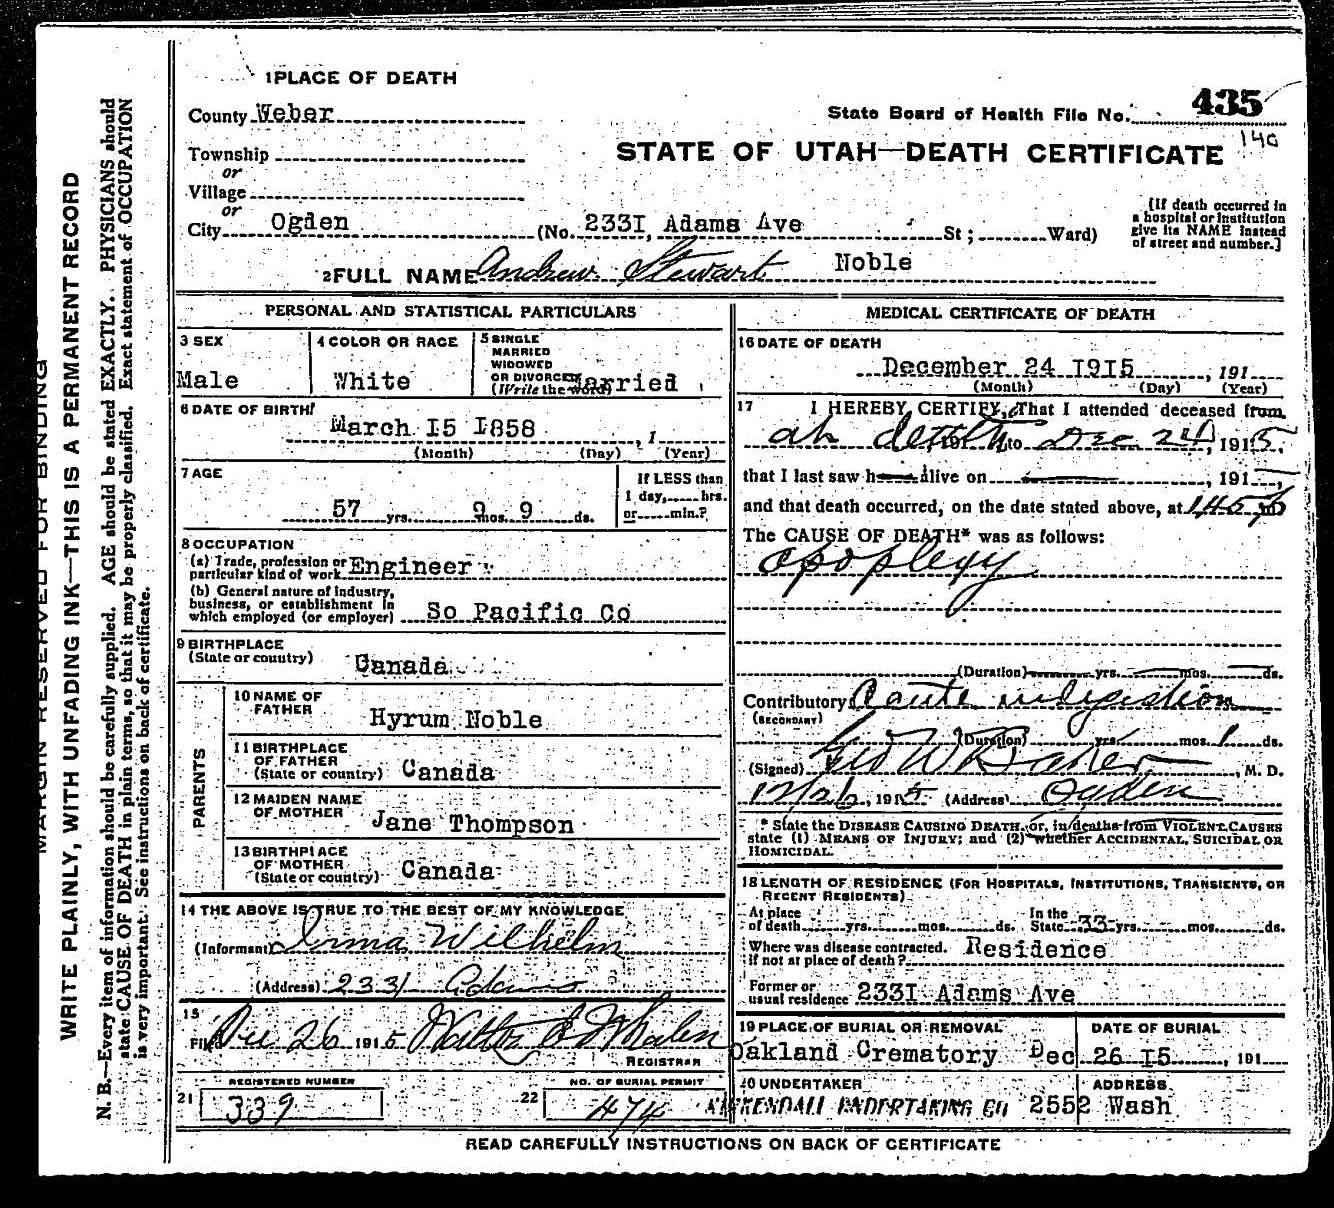 1 PLACE OF DEATH
County Weber
State Board of Health File No. 435
140
Township
or
Village
or
City Ogden (No. 233I, Adams Ave St; Ward)
STATE OF UTAH—DEATH CERTIFICATE
[If death occurred in
a hospital or institution
give its NAME instead
of street and number.]
2 FULL NAME Andrew Stewart Noble
PERSONAL AND STATISTICAL PARTICULARS
3 SEX
Male
4 COLOR OR RACE
White
5 SINGLE
MARRIED
WIDOWED
OR DIVORCED
(Write the word)
Married
6 DATE OF BIRTH
March I5 I858 , 1
(Month) (Day) (Year)
7 AGE
57 yrs. 9 mos. 9 ds.
If LESS than
1 day, hrs.
or min.?
8 OCCUPATION
(a) Trade, profession or
particular kind of work Engineer
(b) General nature of industry,
business, or establishment in
which employed (or employer) So Pacific Co
9 BIRTHPLACE
(State or country) Canada
PARENTS
10 NAME OF
FATHER Hyrum Noble
11 BIRTHPLACE
OF FATHER
(State or country) Canada
12 MAIDEN NAME
OF MOTHER Jane Thompson
13 BIRTHPLACE
OF MOTHER
(State or country) Canada
14 THE ABOVE IS TRUE TO THE BEST OF MY KNOWLEDGE
(Informant) Irma Wilhelm
(Address) 2331 Adams
15
Filed Dec 26 1915 Whalen
REGISTRAR
REGISTERED NUMBER
21 339
NO. OF BURIAL PERMIT
22 474
MEDICAL CERTIFICATE OF DEATH
16 DATE OF DEATH
December 24 I9I5 , 191
(Month) (Day) (Year)
17 I HEREBY CERTIFY, That I attended deceased from
at death to Dec 24, 1915,
that I last saw h alive on , 191 ,
and that death occurred, on the date stated above, at 145 p
The CAUSE OF DEATH* was as follows:
apoplexy
(Duration) yrs. mos. ds.
Contributory Acute indigestion
(SECONDARY)
(Duration) yrs. mos. 1 ds.
(Signed) Geo W Baker, M. D.
12/26, 1915 (Address) Ogden
* State the DISEASE CAUSING DEATH, or, in deaths from VIOLENT CAUSES
state (1) MEANS OF INJURY; and (2) whether ACCIDENTAL, SUICIDAL OR
HOMICIDAL.
18 LENGTH OF RESIDENCE (FOR HOSPITALS, INSTITUTIONS, TRANSIENTS, OR
RECENT RESIDENTS)
At place
of death yrs. mos. ds.
In the
State 33 yrs. mos. ds.
Where was disease contracted,
if not at place of death? Residence
Former or
usual residence 233I Adams Ave
19 PLACE OF BURIAL OR REMOVAL
Oakland Crematory
DATE OF BURIAL
Dec 26 I5 , 191
20 UNDERTAKER
KIRKENDALL UNDERTAKING CO
ADDRESS
2552 Wash
READ CAREFULLY INSTRUCTIONS ON BACK OF CERTIFICATE
MARGIN RESERVED FOR BINDING
WRITE PLAINLY, WITH UNFADING INK—THIS IS A PERMANENT RECORD
N. B.—Every item of information should be carefully supplied. AGE should be stated EXACTLY. PHYSICIANS should
state CAUSE OF DEATH in plain terms, so that it may be properly classified. Exact statement of OCCUPATION
is very important. See instructions on back of certificate.